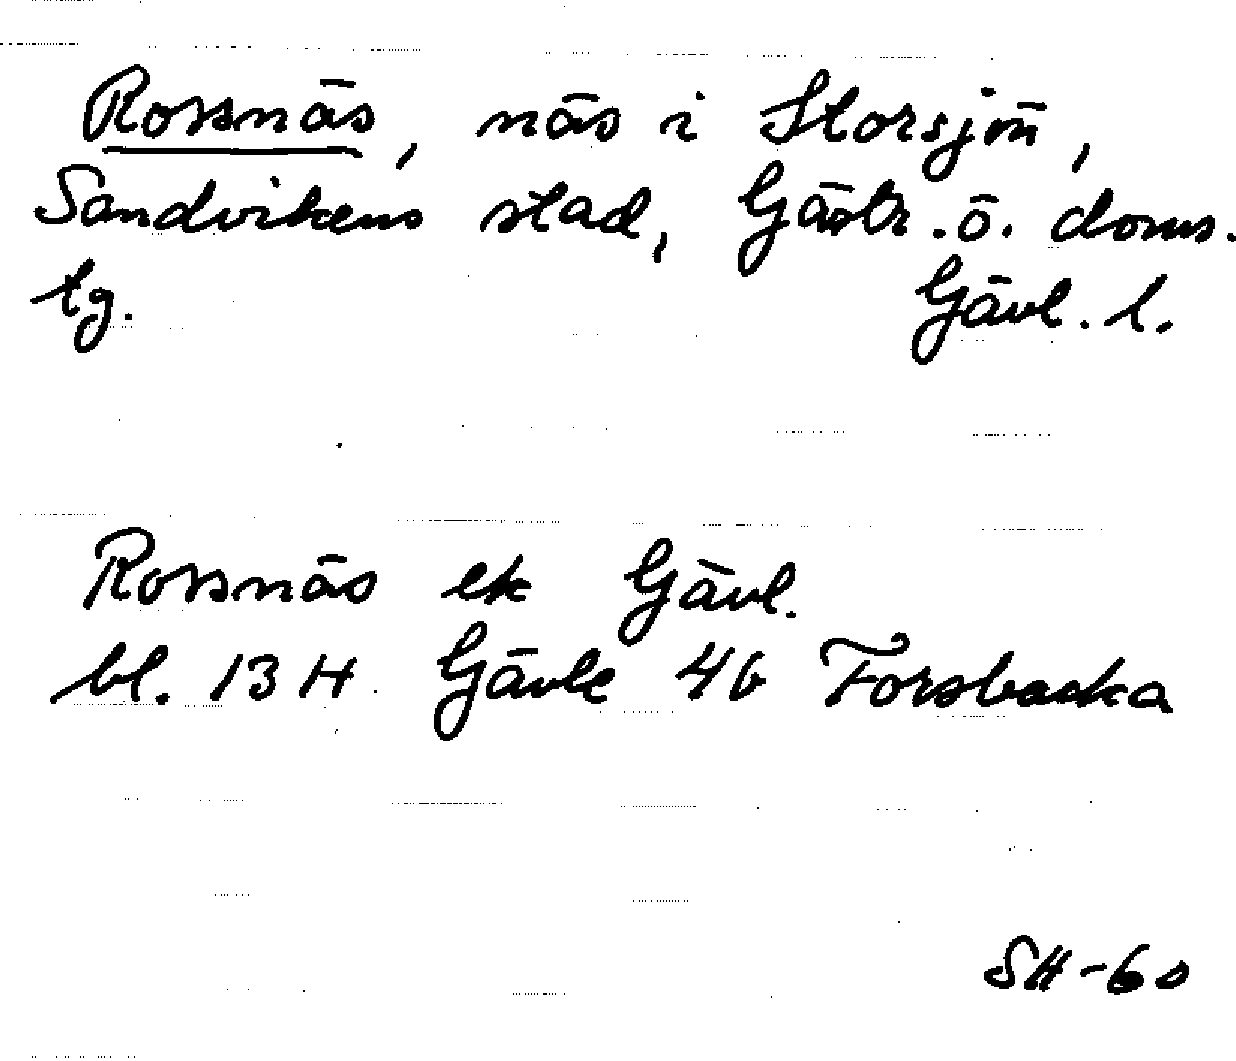 Rossnäs, näs i Storsjön,
Sandvikens stad, Gästr. ö. doms.
tg. Gävl. l.
Rossnäs ek Gävl.
bl. 13 H Gävle 4b Forsbacka
SH-60